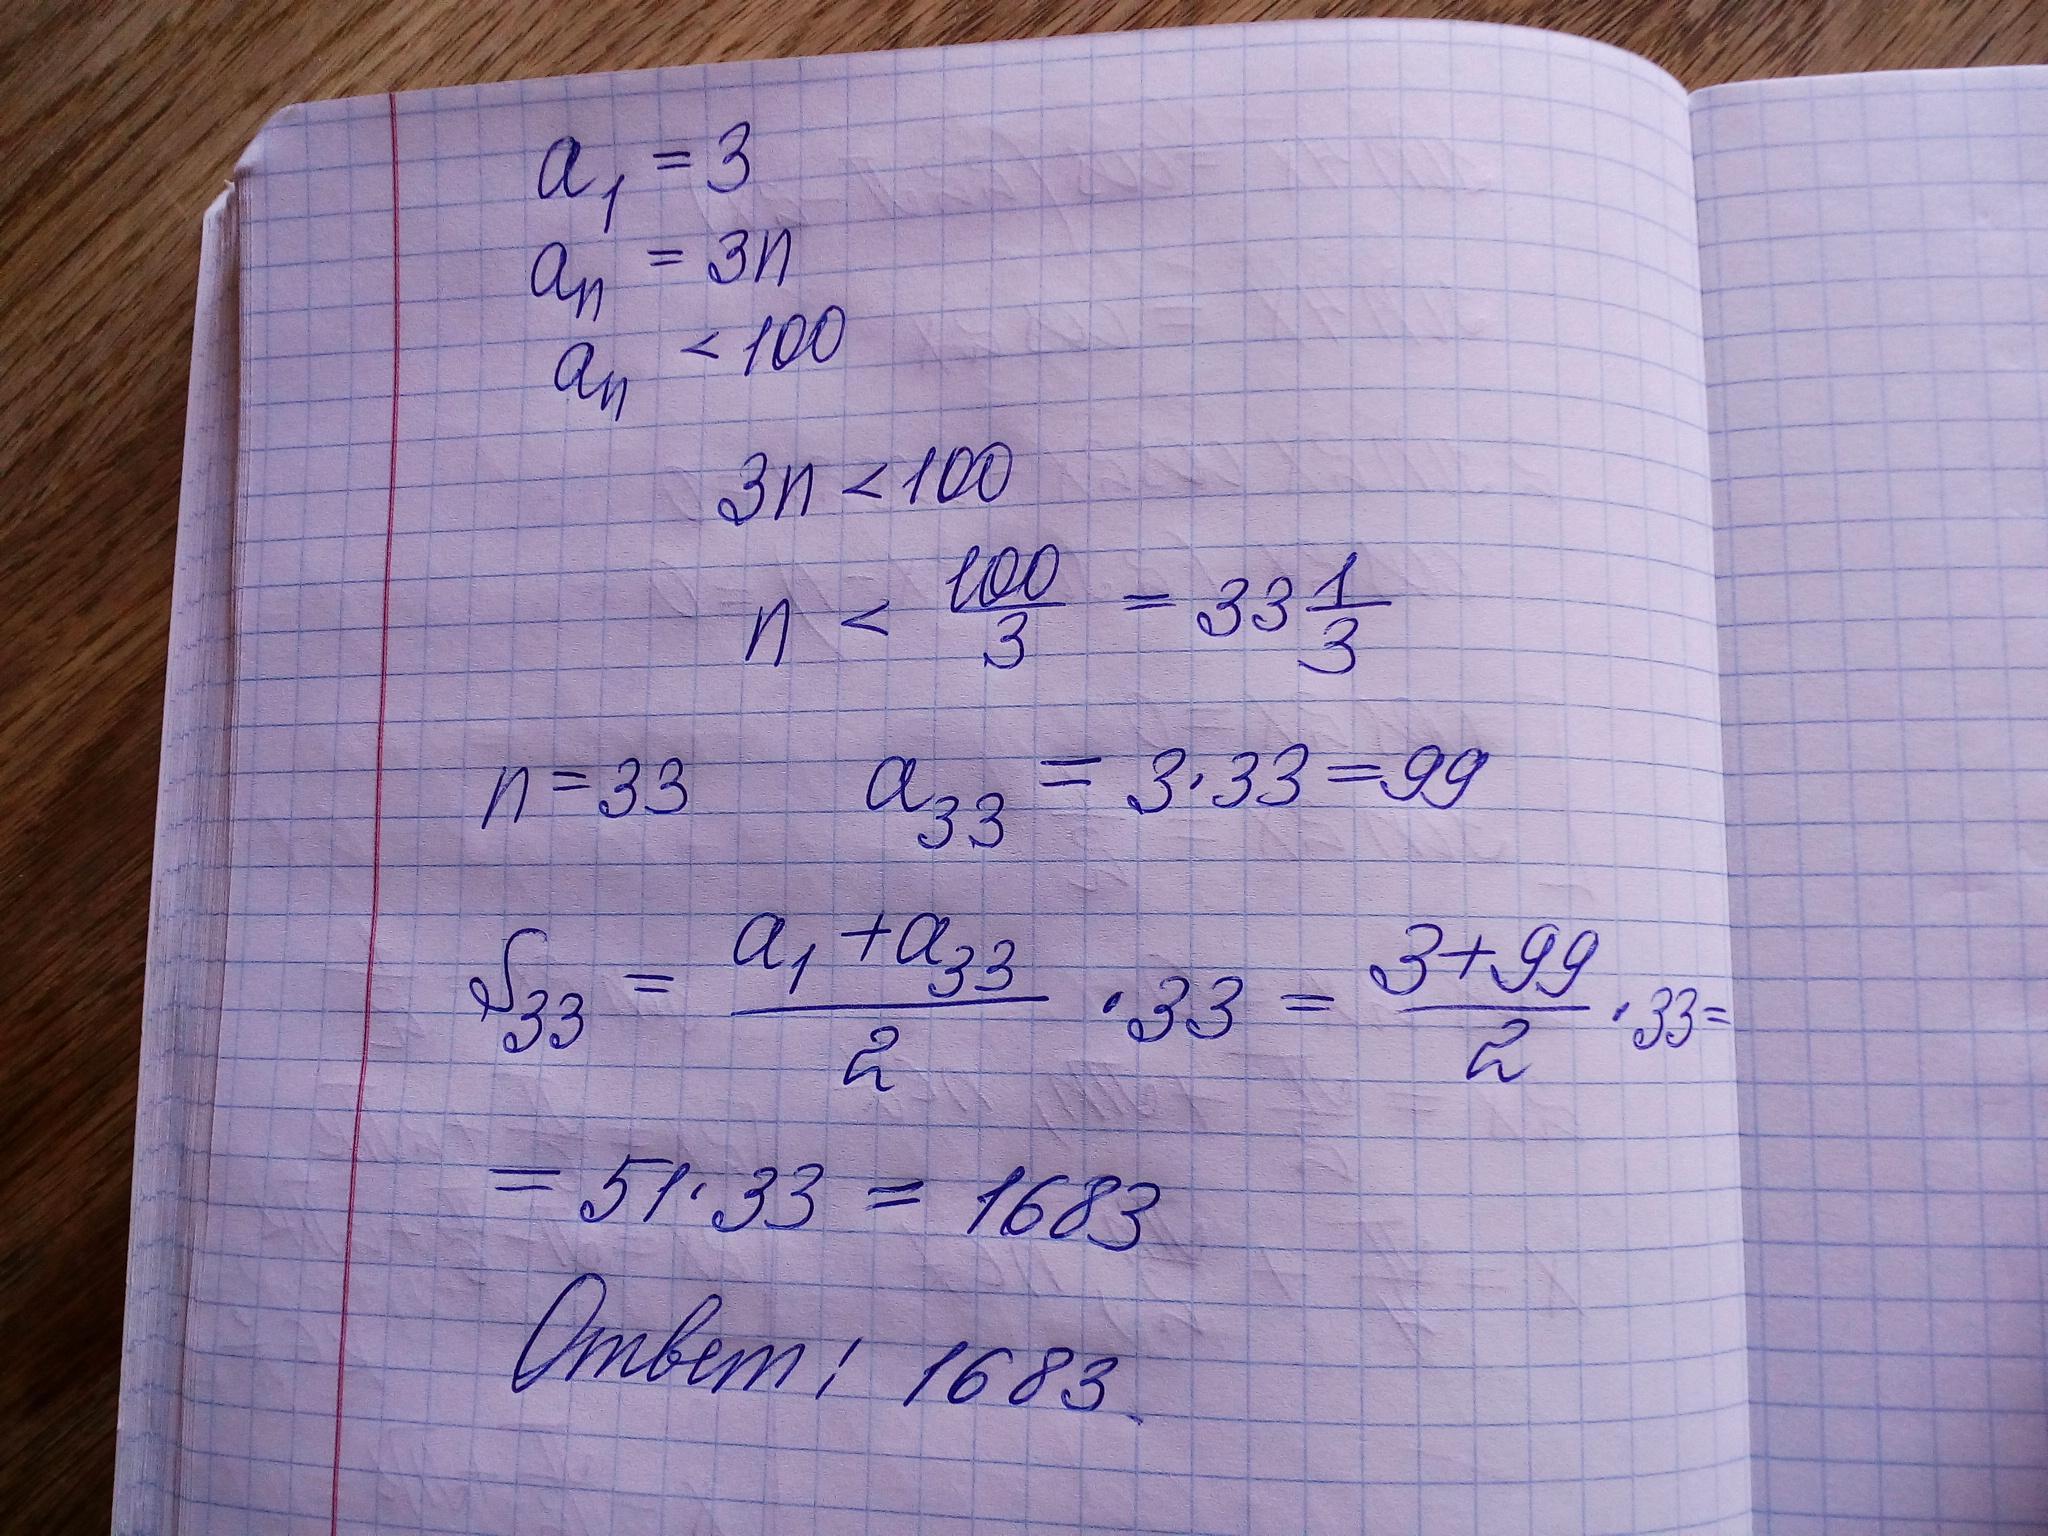 a₁ = 3
aₙ = 3n
aₙ < 100
3n < 100
n < 100/3 = 33 1/3
n = 33 a₃₃ = 3·33 = 99
S₃₃ = (a₁ + a₃₃)/2 · 33 = (3 + 99)/2 · 33 =
= 51·33 = 1683
Ответ: 1683.